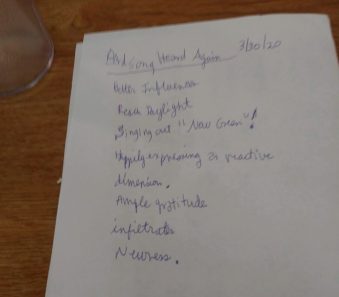 And Song Heard Again 3/30/20
Better Influences
Reach Daylight
Singing out "New Green"!
Happily expressing a creative
dimension.
Ample gratitude
infiltrates
Newness.